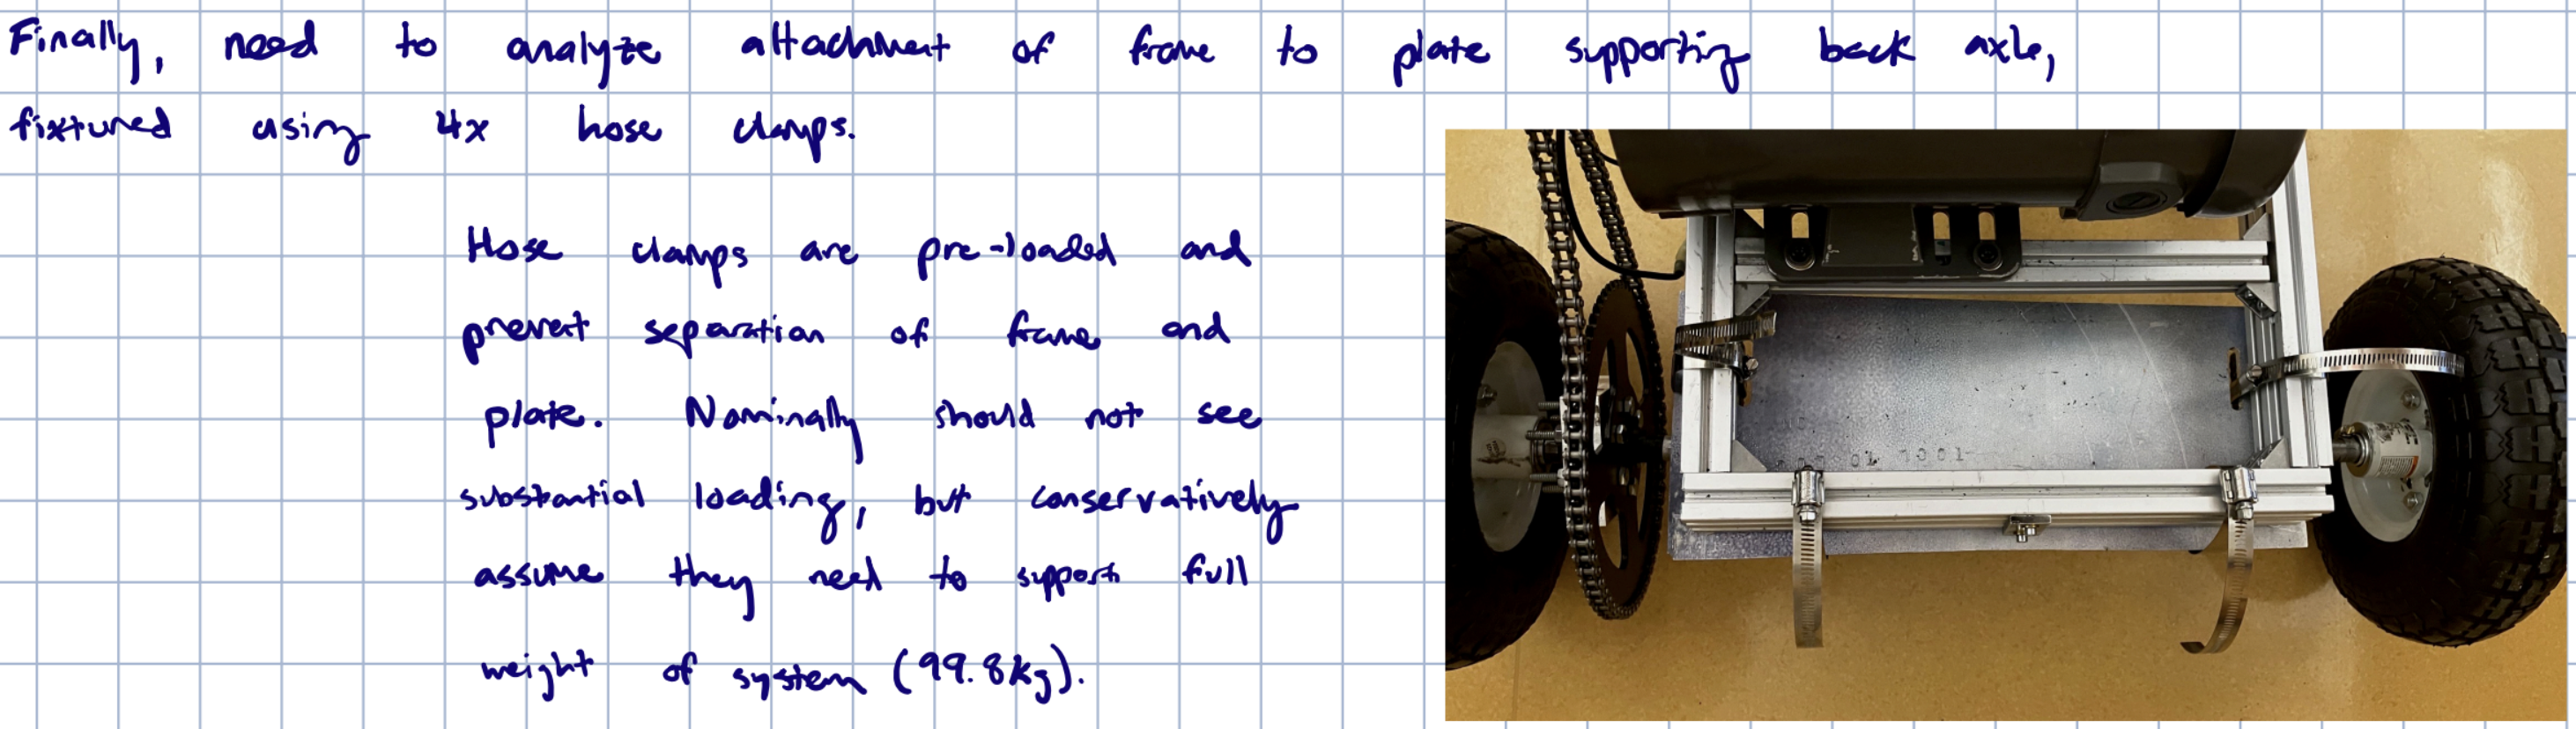 Finally, need to analyze attachment of frame to plate supporting back axle,
fixtured using 4x hose clamps.
Hose clamps are pre-loaded and
prevent separation of frame and
plate. Nominally should not see
substantial loading, but conservatively
assume they need to support full
weight of system (99.8kg).